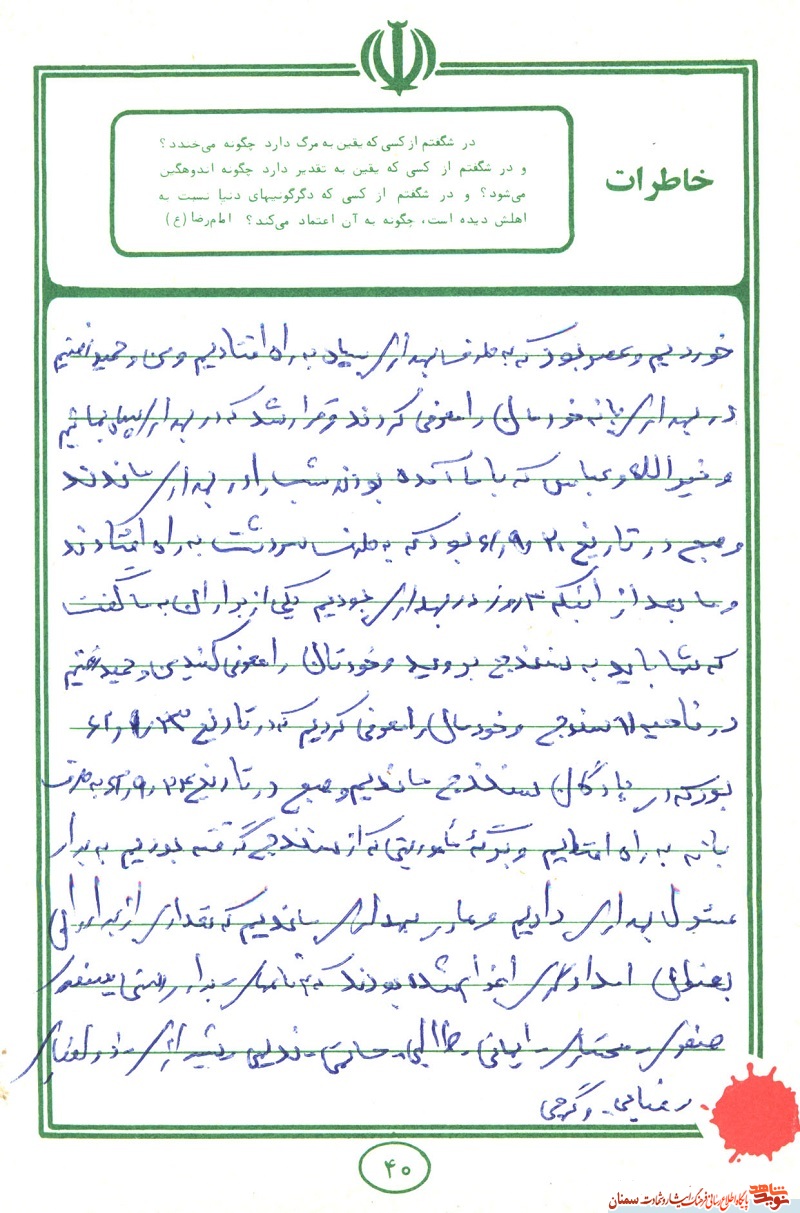 خاطرات
در شگفتم از کسی که یقین به مرگ دارد چگونه می‌خندد؟
و در شگفتم از کسی که یقین به تقدیر دارد چگونه اندوهگین
می‌شود؟ و در شگفتم از کسی که دگرگونیهای دنیا نسبت به
اهلش دیده است، چگونه به آن اعتماد می‌کند؟ امام رضا (ع)
خوردیم و عصر بود که به طرف بهداری سپاه به راه افتادیم و من و حمید رفتیم
در بهداری بانه خودمان را معرفی کردند و قرار شد که در بهداری سپاه بمانیم
و خیراله و عباس که با ما آمده بودند شب را در بهداری ماندند
و صبح در تاریخ ۲۰ر۹ر۶۱ بود که به طرف سردشت به راه افتادند
و ما بعد از اینکه ۳ روز در بهداری بودیم یکی از برادران به ما گفت
که شما باید به سنندج بروید و خودتان را معرفی کنید من و حمید رفتیم
در ناحیه سنندج و خودمان را معرفی کردیم که در تاریخ ۲۳ر۹ر۶۱
بود که در پادگان سنندج ماندیم و صبح در تاریخ ۲۴ر۹ر۶۱ به طرف
بانه به راه افتادیم و برگه مأموریتی که از سنندج گرفته بودیم به برادر
مسئول بهداری دادیم و ما در بهداری ماندیم که تعدادی از برادران
بعنوان امدادگری اعزام شده بودند که نامهای برادر
صفری - مختاری - ایمانی - حاتمی - شیرازی - ذوالفقاری
- ضیایی - و گرجی
۴۰
نوید شاهد
پایگاه اطلاع رسانی فرهنگ ایثار و شهادت سمنان